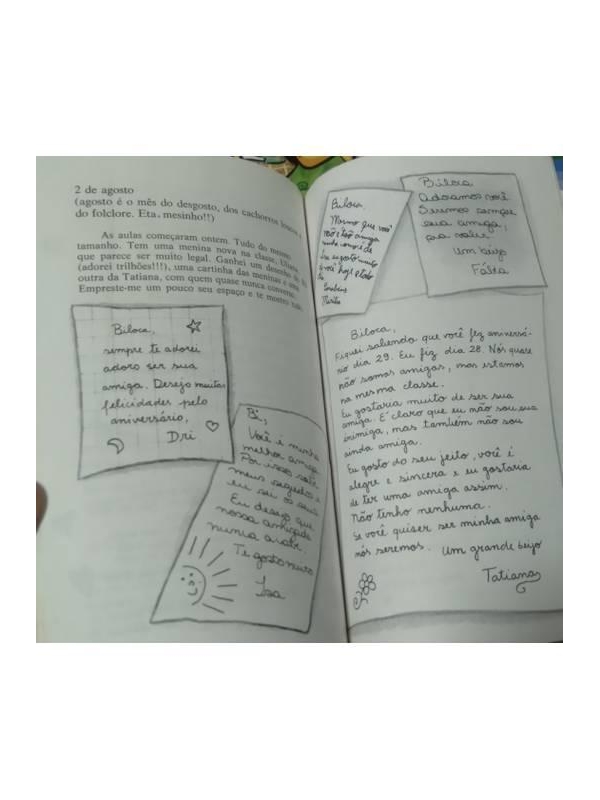 2 de agosto
(agosto é o mês do desgosto, dos cachorros
do folclore. Eta, mesinho!!)
As aulas começaram ontem. Tudo do mesmo
tamanho. Tem uma menina nova na classe,
que parece ser muito legal. Ganhei um
(adorei trilhões!!!), uma cartinha das meninas e
outra da Tatiana, com quem quase nunca
Empreste-me um pouco seu espaço e te mostro
Biloca,
sempre te adorei
adoro ser sua
amiga. Desejo muitas
felicidades pelo
aniversário,
Dri
Bi,
Você é minha
melhor amiga
Por isso sabe
meus segredos e
eu sei os seus
Eu desejo que
nossa amizade
nunca acabe
Te gosto muito
Isa
Biloca
Mesmo que você
não é tão amiga
eu gosto muito
Biloca
Adoramos você
Seremos sempre
sua amiga,
pra valer!
Um beijo
Fábia
Biloca,
Fiquei sabendo que você fez aniversá-
rio dia 29. Eu fiz dia 28. Nós quase
não somos amigas, mas estamos
na mesma classe.
Eu gostaria muito de ser sua
amiga. É claro que eu não sou sua
inimiga, mas também não sou
ainda amiga.
Eu gosto do seu jeito, você é
alegre e sincera e eu gostaria
de ter uma amiga assim.
Não tenho nenhuma.
Se você quiser ser minha amiga
nós seremos. Um grande beijo
Tatiana